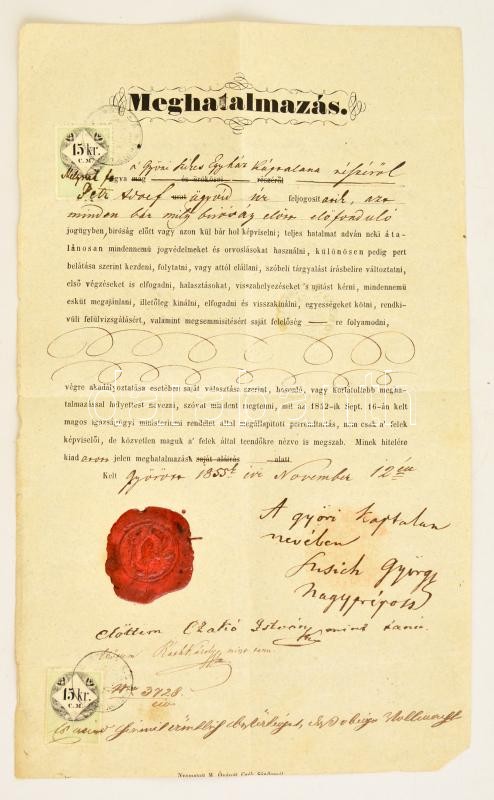 Meghatalmazás.
15 kr.
C.M.
a Győri székes Egyház Káptalana részéről
fogva meg és örökösei részéről
Petz József ügyvéd úr feljogosit, az
minden bár mily biróság előtt előforduló
jogügyben, biróság előtt vagy azon kül bár hol képviselni; teljes hatalmat adván neki áta-
lánosan mindennemű jogvédelmeket és orvoslásokat használni, különösen pedig pert
belátása szerint kezdeni, folytatni, vagy attól elállani, szóbeli tárgyalást irásbelire változtatni,
első végzéseket is elfogadni, halasztásokat, visszahelyezéseket 's ujitást kérni, mindennemű
esküt megajánlani, illetőleg kinálni, elfogadni és visszakinálni, egyességeket kötni, rendki-
vüli felülvizsgálásért, valamint megsemmisitésért saját felelőség re folyamodni,
végre akadályoztatása esetében saját választása szerint, hasonló, vagy korlátoltebb megha-
talmazással helyettest nevezni, szóval mindent megtenni, mit az 1852-ik Sept. 16-án kelt
magos igazságügyi ministeriumi rendelet által megállapitott perrendtartás, nem csak a' felek
képviselői, de közvetlen maguk a' felek által teendőkre nézve is megszab. Minek hitelére
kiad jelen meghatalmazás saját aláirás alatt.
Kelt Győrött 1855 évi November 12én
A győri káptalan
nevében
Susich György
Nagyprépost
előttem Czakó István mint tanú
mint tanu
3728
15 kr.
C.M.